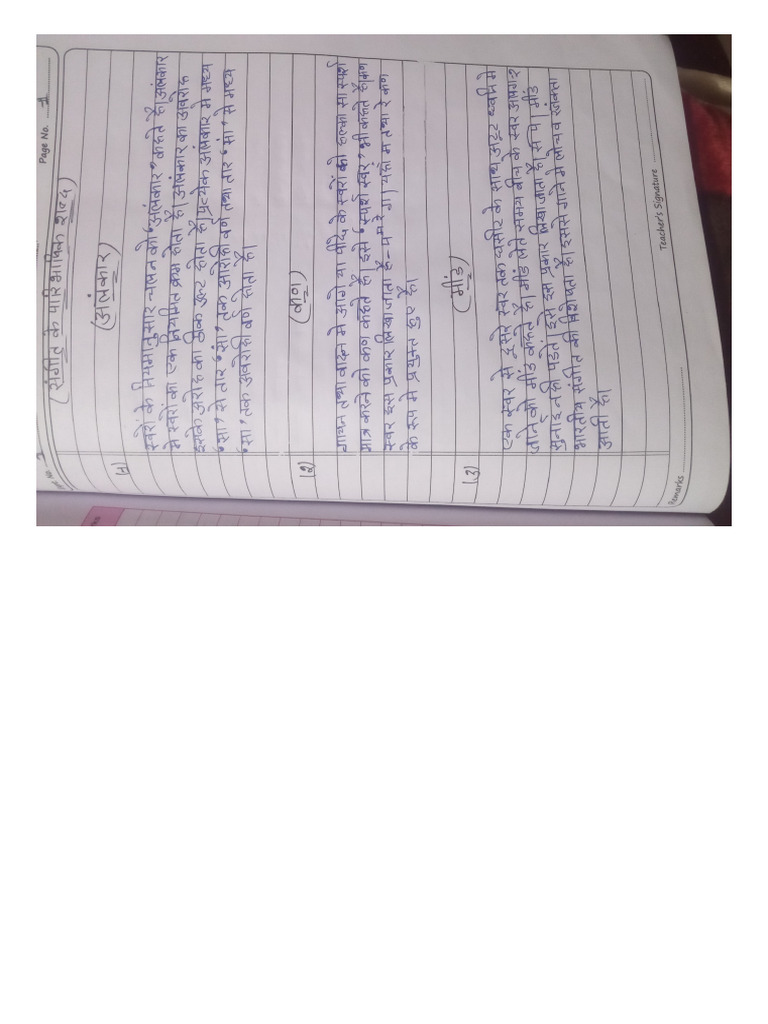 Page No. 1
(संगीत के पारिभाषिक शब्द)
(अलंकार)
(1) स्वरों के नियमानुसार चलन को 'अलंकार' कहते है। अलंकार
मे स्वरों का एक नियमित क्रम होता है। अलंकार का अवरोह
इसके अरोह का ठीक उल्ट होता है। प्रत्येक अलंकार मे मध्य
'सा' से तार 'सां' तक आरोही वर्ण तथा तार 'सां' से मध्य
'सा' तक अवरोही वर्ण होता है।
(कण)
(2) गायन तथा वादन मे आगे या पीछे के स्वरों को हल्का सा स्पर्श
मात्र करने को कण कहते है। इसे 'स्पर्श स्वर' भी कहते है। कण
स्वर इस प्रकार लिखा जाता है - प म रे ग। यहाँ म तथा रे कण
के रूप मे प्रयुक्त हुए है।
(मींड)
(3) एक स्वर से दूसरे स्वर तक घसीट के साथ अटूट ध्वनि मे
जाने को मींड कहते है। मींड लेते समय बीच के स्वर अलग २
सुनाई नही पड़ते। इसे इस प्रकार लिखा जाता है। सं प। मींड
भारतीय संगीत की विशेषता है। इससे गाने मे लोच व रंजकता
आती है।
Remarks
Teacher's Signature